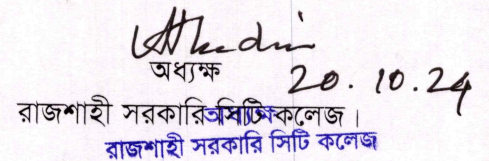 অধ্যক্ষ
20.10.24
রাজশাহী সরকারি সিটি কলেজ।
রাজশাহী সরকারি সিটি কলেজ